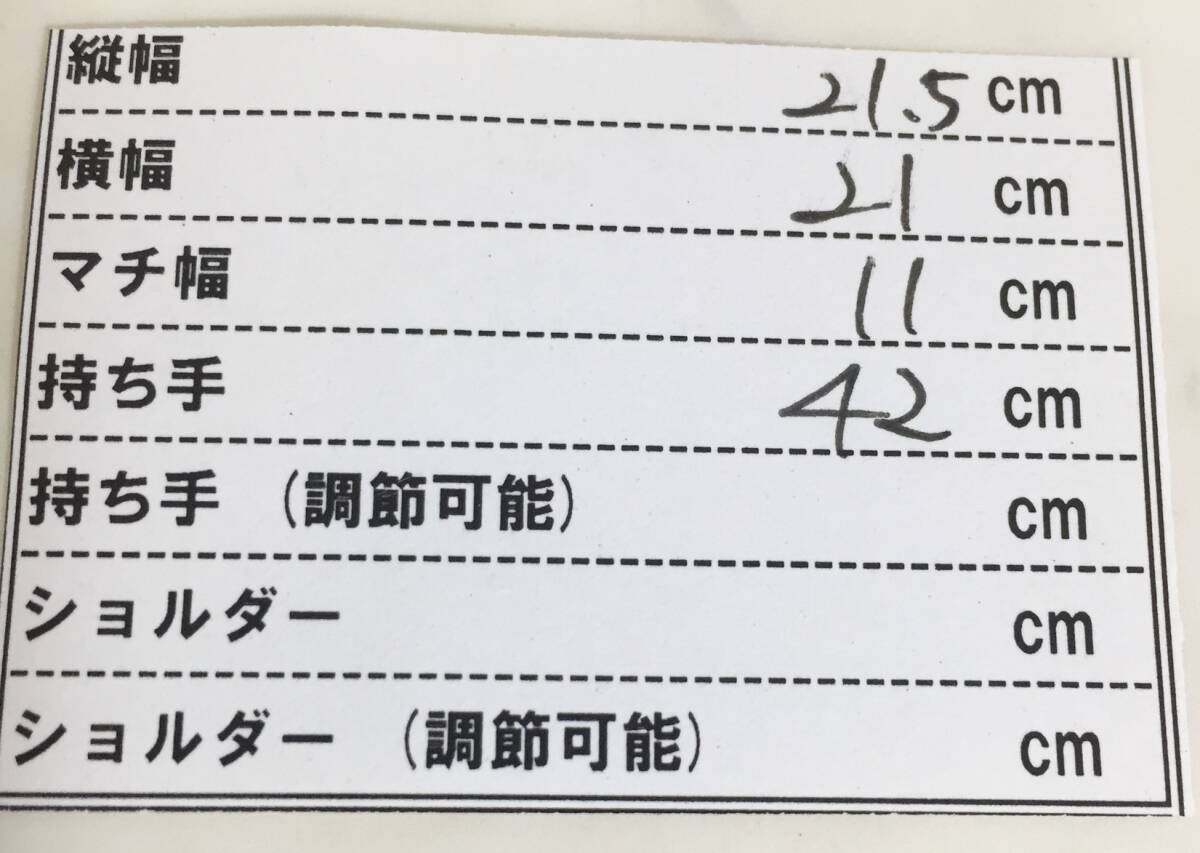 縦幅 21.5 cm
横幅 21 cm
マチ幅 11 cm
持ち手 42 cm
持ち手 (調節可能) cm
ショルダー cm
ショルダー (調節可能) cm